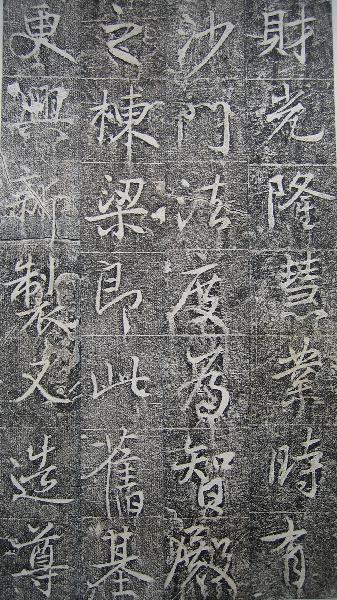 財克隆慧業時有
沙門法度爲智殿
之棟梁即此舊基
更興新製又造尊